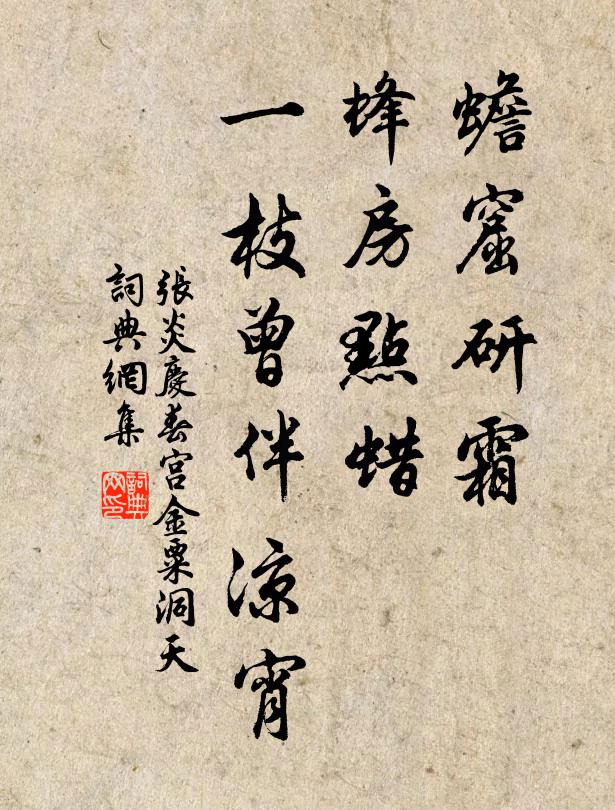 蟾窟研霜
蜂房點蜡
一枝曾伴涼宵
張炎慶春宮金粟洞天
詞典網集
詞典
网印